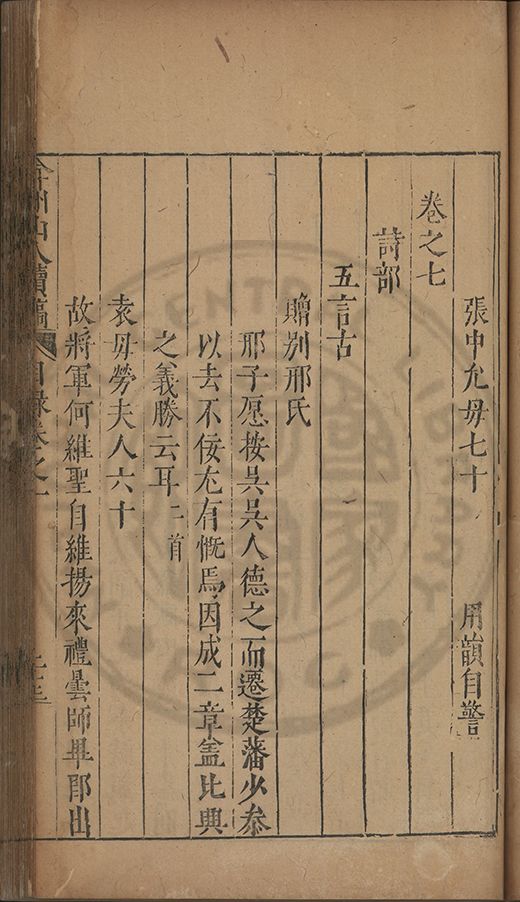 張中允母七十 用韻自警
卷之七
詩部
五言古
贈别邢氏
邢子愿按吳吳人德之而遷楚藩少叅
以去不佞尤有慨焉因成二章盖比興
之義勝云耳二首
袁母勞夫人六十
故將軍何維聖自維揚來禮曇師畢即出
弇州山人續稿 目録卷之一